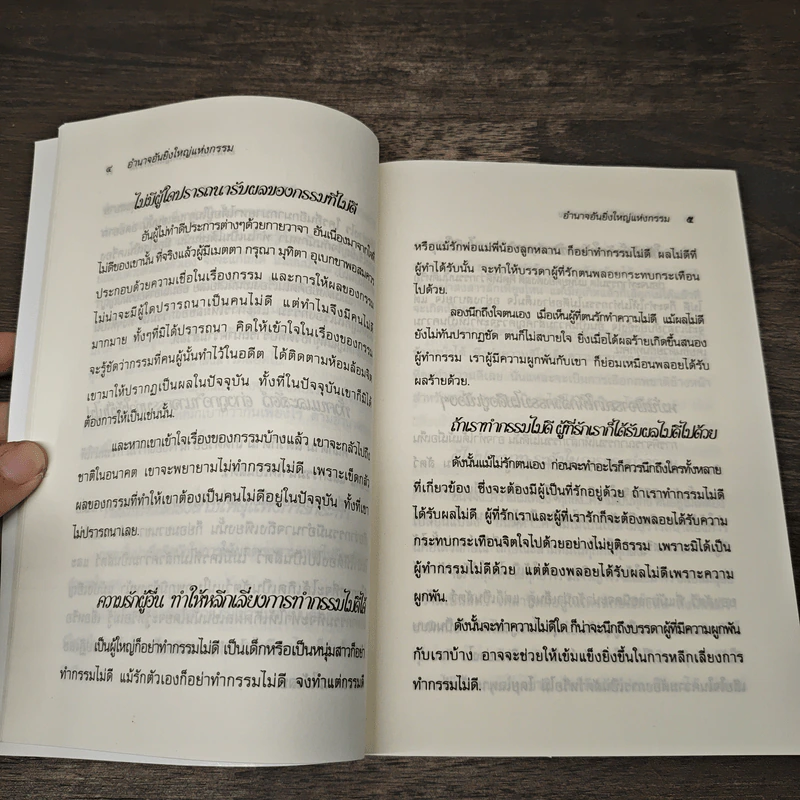 ๔ อำนาจอันยิ่งใหญ่แห่งกรรม
ไม่มีผู้ใดปรารถนารับผลของกรรมที่ไม่ดี
อันผู้ไม่ทำดีประการต่างๆด้วยกายวาจา อันเนื่องมาจากใจที่
ไม่ดีของเขานั้น ที่จริงแล้วผู้มีเมตตา กรุณา มุทิตา อุเบกขาพอสมควร
ประกอบด้วยความเชื่อในเรื่องกรรม และการให้ผลของกรรม
ไม่น่าจะมีผู้ใดปรารถนาเป็นคนไม่ดี แต่ทำไมจึงมีคนไม่ดี
มากมาย ทั้งๆที่มิได้ปรารถนา คิดให้เข้าใจในเรื่องของกรรม
จะรู้ชัดว่ากรรมที่คนผู้นั้นทำไว้ในอดีต ได้ติดตามห้อมล้อมจิต
เขามาให้ปรากฏเป็นผลในปัจจุบัน ทั้งที่ในปัจจุบันเขาก็มิได้
ต้องการให้เป็นเช่นนั้น.
และหากเขาเข้าใจเรื่องของกรรมบ้างแล้ว เขาจะกลัวไปถึง
ชาติในอนาคต เขาจะพยายามไม่ทำกรรมไม่ดี เพราะเข็ดกลัว
ผลของกรรมที่ทำให้เขาต้องเป็นคนไม่ดีอยู่ในปัจจุบัน ทั้งที่เขา
ไม่ปรารถนาเลย.
ความรักผู้อื่น ทำให้หลีกเลี่ยงการทำกรรมไม่ดีได้
เป็นผู้ใหญ่ก็อย่าทำกรรมไม่ดี เป็นเด็กหรือเป็นหนุ่มสาวก็อย่า
ทำกรรมไม่ดี แม้รักตัวเองก็อย่าทำกรรมไม่ดี จงทำแต่กรรมดี
อำนาจอันยิ่งใหญ่แห่งกรรม ๕
หรือแม้รักพ่อแม่พี่น้องลูกหลาน ก็อย่าทำกรรมไม่ดี ผลไม่ดีที่
ผู้ทำได้รับนั้น จะทำให้บรรดาผู้ที่รักตนพลอยกระทบกระเทือน
ไปด้วย.
ลองนึกถึงใจตนเอง เมื่อเห็นผู้ที่ตนรักทำความไม่ดี แม้ผลไม่ดี
ยังไม่ทันปรากฏชัด ตนก็ไม่สบายใจ ยิ่งเมื่อได้ผลร้ายเกิดขึ้นสนอง
ผู้ทำกรรม เราผู้มีความผูกพันกับเขา ก็ย่อมเหมือนพลอยได้รับ
ผลร้ายด้วย.
ถ้าเราทำกรรมไม่ดี ผู้ที่รักเราก็ได้รับผลไม่ดีไปด้วย
ดังนั้นแม้ไม่รักตนเอง ก่อนจะทำอะไรก็ควรนึกถึงใครทั้งหลาย
ที่เกี่ยวข้อง ซึ่งจะต้องมีผู้เป็นที่รักอยู่ด้วย ถ้าเราทำกรรมไม่ดี
ได้รับผลไม่ดี ผู้ที่รักเราและผู้ที่เรารักก็จะต้องพลอยได้รับความ
กระทบกระเทือนจิตใจไปด้วยอย่างไม่ยุติธรรม เพราะมิได้เป็น
ผู้ทำกรรมไม่ดีด้วย แต่ต้องพลอยได้รับผลไม่ดีเพราะความ
ผูกพัน.
ดังนั้นจะทำความไม่ดีใด ก็น่าจะนึกถึงบรรดาผู้ที่มีความผูกพัน
กับเราบ้าง อาจจะช่วยให้เข้มแข็งยิ่งขึ้นในการหลีกเลี่ยงการ
ทำกรรมไม่ดี.